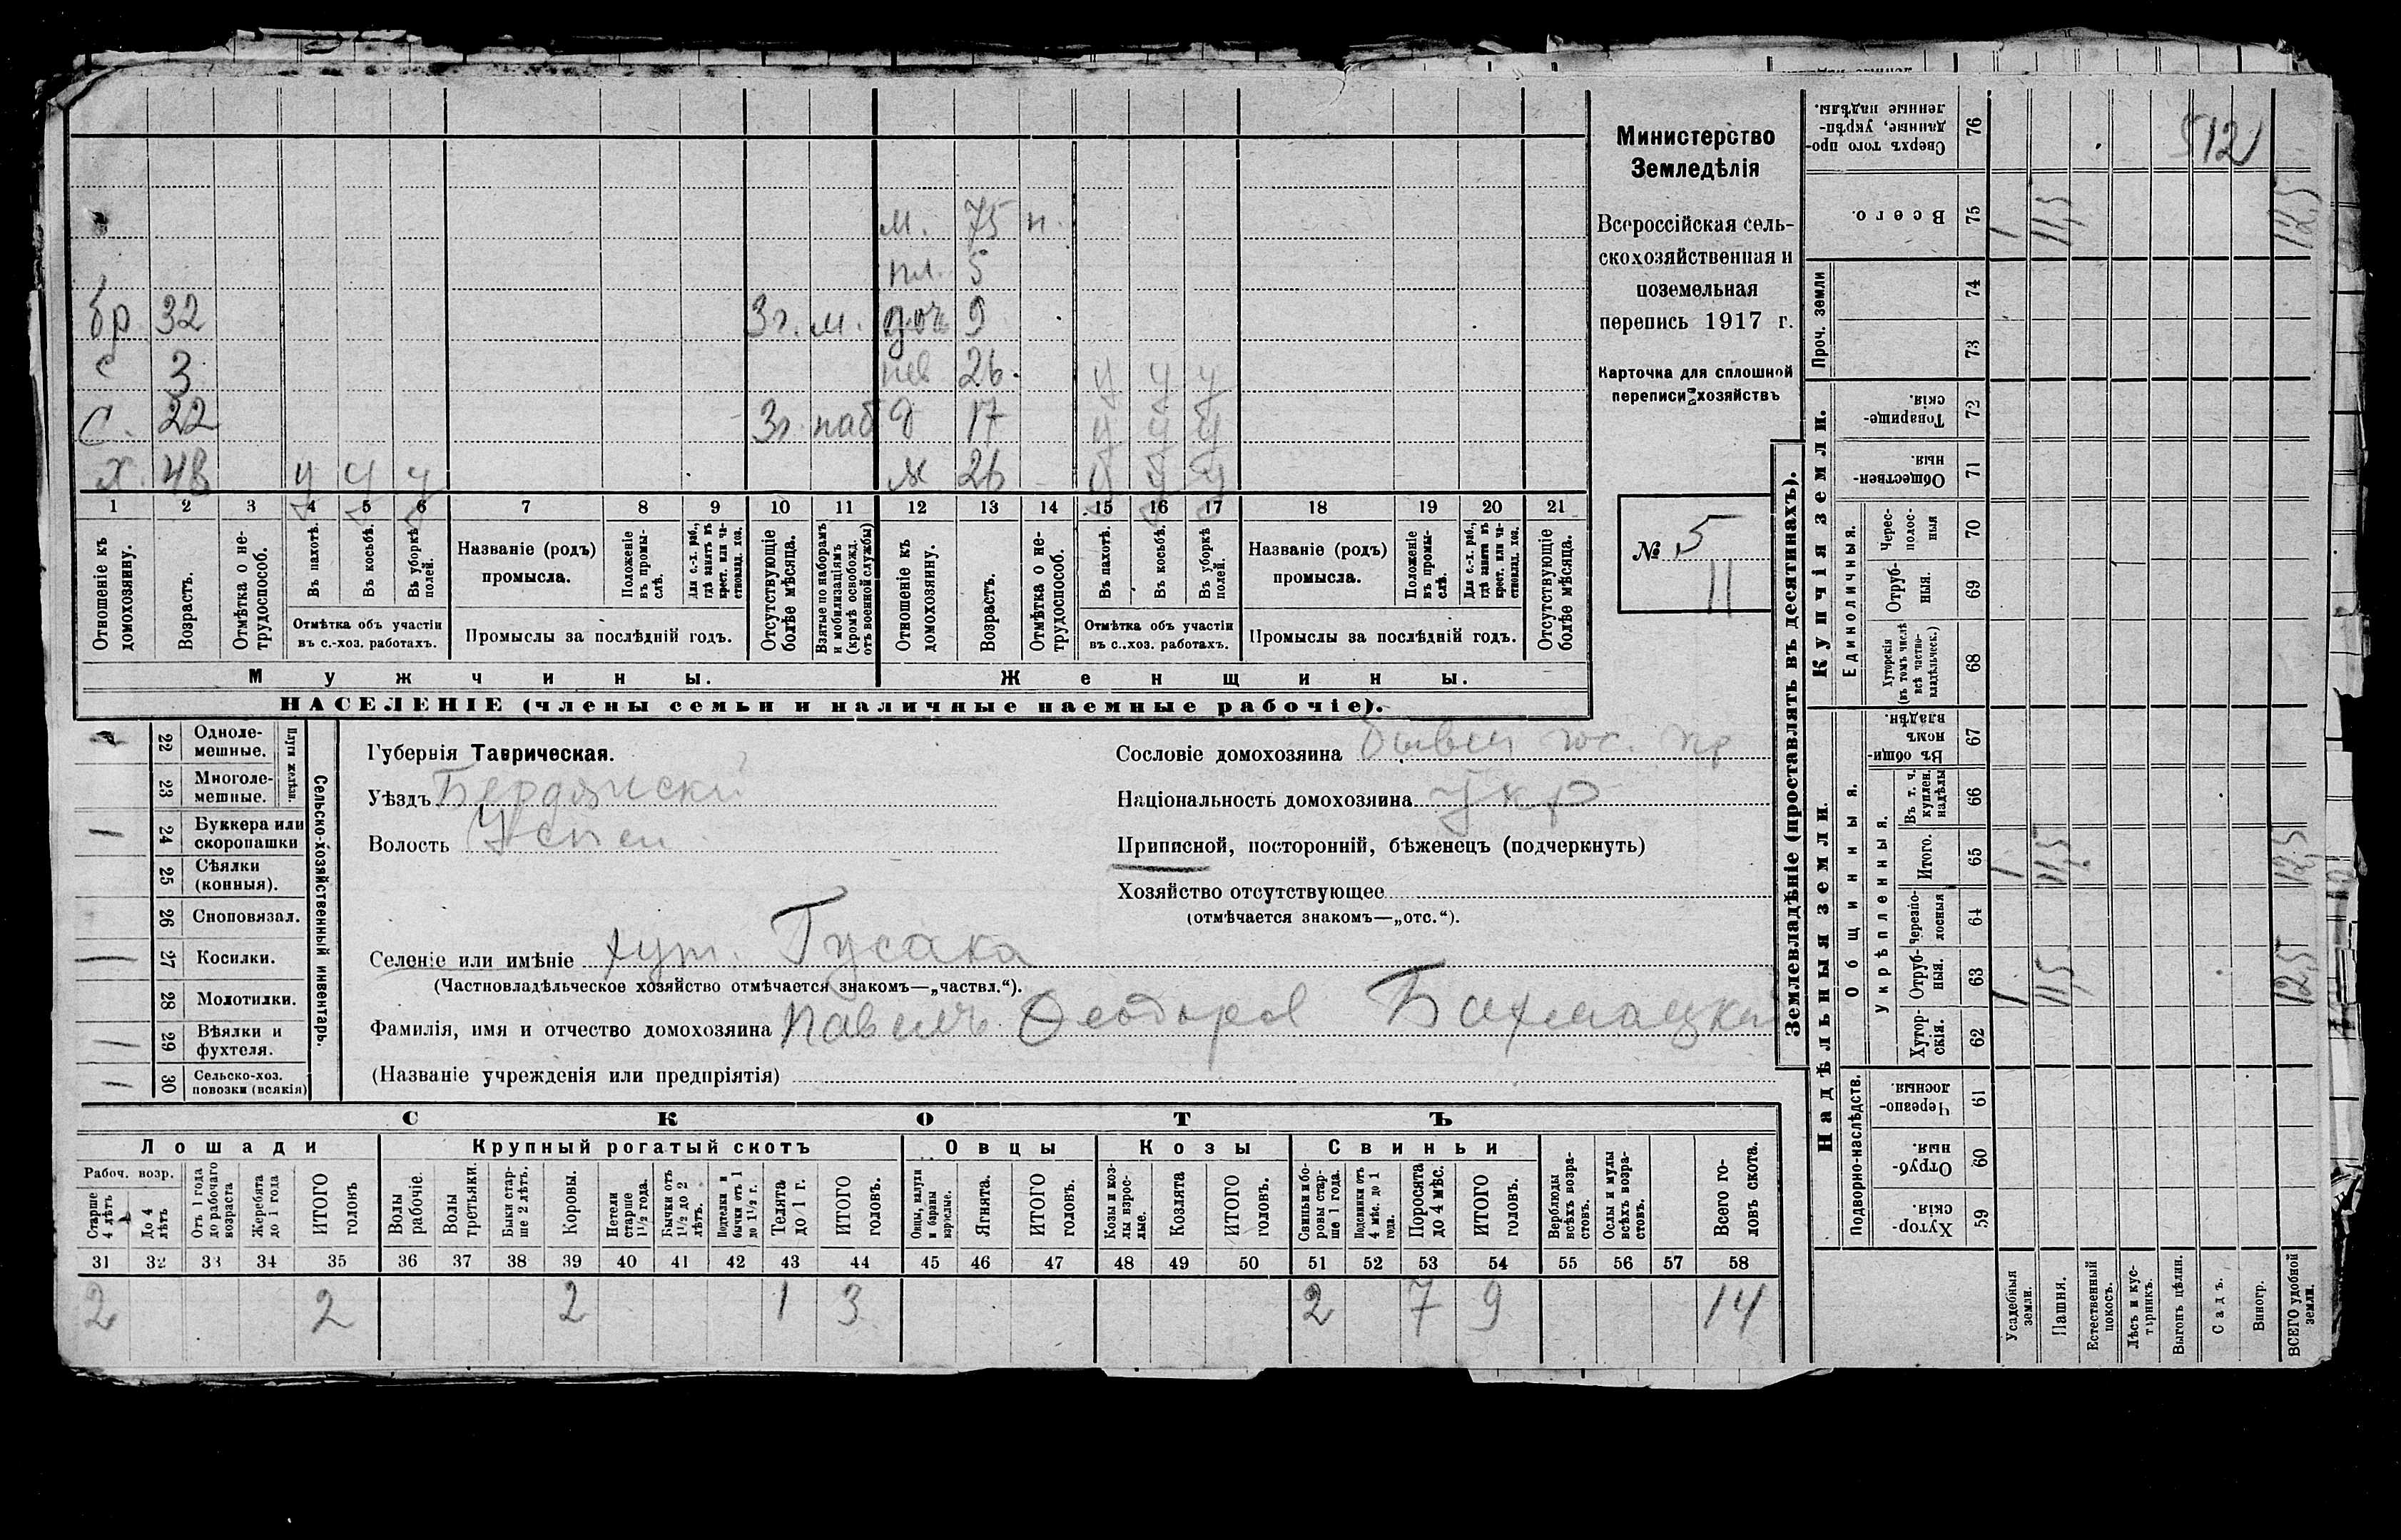 м. 75 н.
пл. 5
бр 32 3г. м. доч 9
с 3 нев 26. у у у
с. 22 3г. наб д 17 у у у
х. 48 у у у ж 26 у у у
1 2 3 4 5 6 7 8 9 10 11 12 13 14 15 16 17 18 19 20 21
Отношеніе къ домохозяину.
Возрастъ.
Отмѣтка о не-трудоспособ.
Въ пахотѣ.
Въ косьбѣ.
Въ уборкѣ полей.
Отмѣтка объ участіи
въ с.-хоз. работахъ.
Названіе (родъ)
промысла.
Положеніе въ промы-слѣ.
Для с.-х. раб., гдѣ занятъ въ крест. или ча-стновлад. хоз.
Промыслы за послѣдній годъ.
Отсутствующіе болѣе мѣсяца.
Взятые по наборамъ и мобилизаціямъ (кромѣ освобожд. отъ военной службы)
Отношеніе къ домохозяину.
Возрастъ.
Отмѣтка о не-трудоспособ.
Въ пахотѣ.
Въ косьбѣ.
Въ уборкѣ полей.
Отмѣтка объ участіи
въ с.-хоз. работахъ.
Названіе (родъ)
промысла.
Положеніе въ промы-слѣ.
Для с.-х. раб., гдѣ занята въ крест. или ча-стновлад. хоз.
Промыслы за послѣдній годъ.
Отсутствующіе болѣе мѣсяца.
Мужчины. Женщины.
НАСЕЛЕНІЕ (члены семьи и наличные наемные рабочіе).
Министерство
Земледѣлія
Всероссійская сель-
скохозяйственная и
поземельная
перепись 1917 г.
Карточка для сплошной
переписи хозяйствъ
№ 5
11
22 Одноле-мешные.
23 Многоле-мешные.
Плуги желѣзн.
24 Буккера или скоропашки
25 Сѣялки (конныя).
26 Сноповязал.
27 Косилки.
28 Молотилки.
29 Вѣялки и фухтеля.
30 Сельско-хоз. повозки (всякія)
Сельско-хозяйственный инвентарь.
Губернія Таврическая.
Уѣздъ Бердянский
Волость Успен
Селеніе или имѣніе хут. Гусака
(Частновладѣльческое хозяйство отмѣчается знакомъ—„частвл.“).
Фамилія, имя и отчество домохозяина Павелъ Ѳеодоров Бахмацкий
(Названіе учрежденія или предпріятія)
Сословіе домохозяина бывш гос. кр
Національность домохозяина Укр
Приписной, посторонній, бѣженецъ (подчеркнуть)
Хозяйство отсутствующее
(отмѣчается знакомъ—„отс.“).
СКОТЪ
Лошади Крупный рогатый скотъ Овцы Козы Свиньи
Рабоч. возр.
Старше 4 лѣтъ
До 4 лѣтъ
Отъ 1 года до рабочаго возраста
Жеребята до 1 года
ИТОГО головъ
Волы рабочіе.
Волы третьяки.
Быки стар-ше 2 лѣтъ.
Коровы.
Нетели старше 1½ года.
Бычки отъ 1½ до 2 лѣтъ.
Подтелки и бычки отъ 1 до 1½ г.
Телята до 1 г.
ИТОГО головъ.
Овцы, валухи и бараны взрослые.
Ягнята.
ИТОГО головъ.
Козы и коз-лы взрос-лые.
Козлята
ИТОГО головъ.
Свиньи и бо-ровы стар-ше 1 года.
Подсвинки отъ 4 мѣс. до 1 года.
Поросята до 4 мѣс.
ИТОГО головъ.
Верблюды всѣхъ возра-стовъ.
Ослы и мулы всѣхъ возра-стовъ.
Всего го-ловъ скота.
31 32 33 34 35 36 37 38 39 40 41 42 43 44 45 46 47 48 49 50 51 52 53 54 55 56 57 58
2 2 2 1 3 2 7 9 14
Землевладѣніе (проставлять въ десятинахъ).
Надѣльныя земли. Купчія земли. Проч. земли
Подворно-наслѣдств.
Общинныя.
Укрѣпленныя.
Единоличныя.
Хутор-скія. 59
Отруб-ныя. 60
Черезпо-лосныя. 61
Хутор-скія. 62
Отруб-ныя. 63
Черезпо-лосныя 64
Итого. 65
Въ т. ч. куплен. надѣлы 66
Въ общи-номъ владѣн. 67
Хуторскія (въ томъ числѣ всѣ частно-владѣльческ.) 68
Отруб-ныя. 69
Черес-полос-ныя 70
Обществен-ныя. 71
Товарище-скія. 72
73
74
Всего. 75
Сверхъ того про-данные, укрѣп-ленные надѣлы. 76
Усадебныя земли. 1 1 1
Пашня. 11,5 11,5 11,5
Естественный покосъ.
Лѣсъ и кус-тарникъ.
Выгонъ цѣлин.
Садъ.
Виногр.
ВСЕГО удобной земли. 12,5 12,5 12,5
512